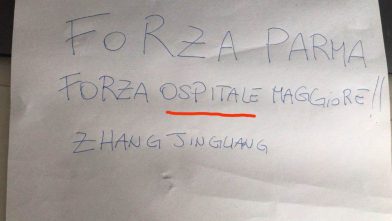 FORZA PARMA
FORZA OSPITALE MAGGIORE!!
ZHANG JINGUANG